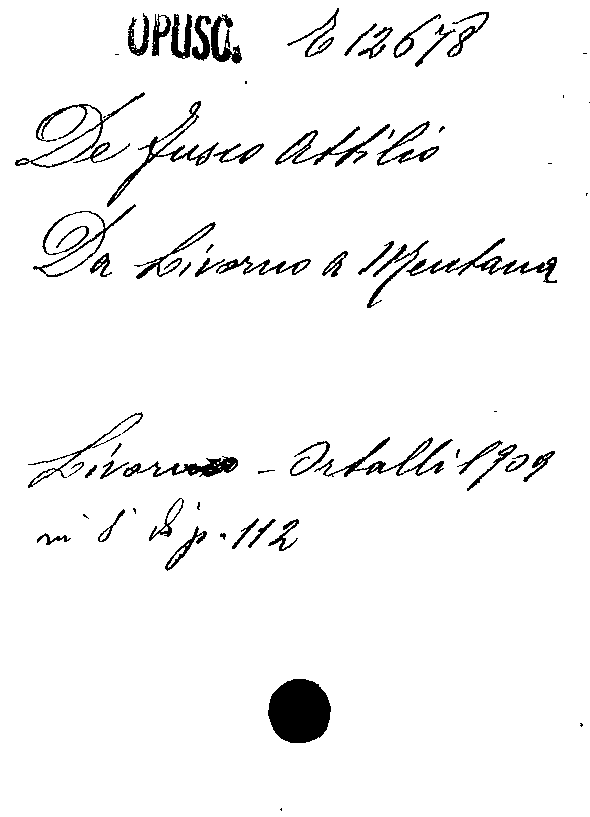 OPUSC. E 12678
De Fusco Attilio
Da Livorno a Mentana
Livorno - Ortalli 1909
in 8° di p. 112